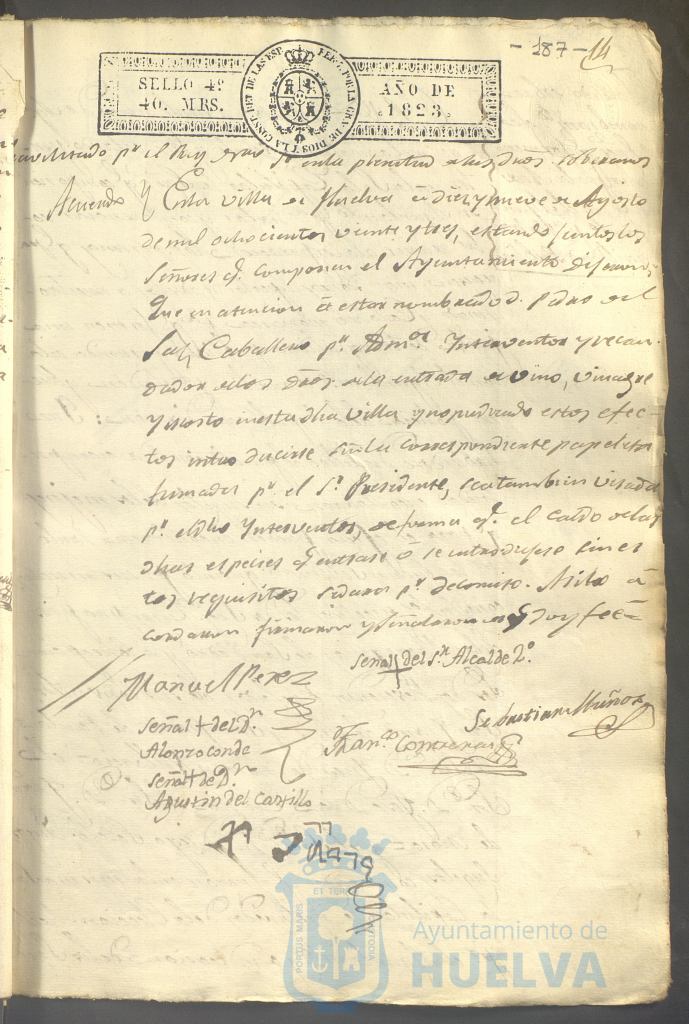 - 187 - 14
SELLO 4º
40. MRS.
AÑO DE
1823.
FER. 7. POR LA GRA. DE DIOS Y LA CONST. REY DE LAS ESP.
avilitado pr. el Rey nro Sr. en la plenitud de sus dros. soberanos
Acuerdo
En la villa de Huelva á diez y nueve de Agosto
de mil ochocientos veinte y tres, estando juntos los
Señores q. componen el Ayuntamiento
Que en atencion á estar nombrado D. Pedro del
Caballero pr. Admor. Interventor y recau-
dador de los dros. de la entrada de vino, vinagre
y mosto en esta dha villa y no pudiendo estos efec-
tos introducirse sin la correspondiente papeleta
firmada pr. el Sr. Presidente, sea tambien visada
pr. el dho Interventor, de forma q. el caldo de las
dhas especies q. entrase ó se introdujese sin es-
tos requisitos se dara pr. decomiso. Asi lo á-
cordaron firmaron y señalaron doy fee=
Señal + del Sr. Alcalde 2º.
Manuel Perez
Sebastian Muñoz
Señal + del Dn.
Alonzo conde
Fran.co Contreras
Señal + de Dn.
Agustin del Castillo
PORTUS MARIS ET TERRÆ CUSTODIA
Ayuntamiento de
HUELVA